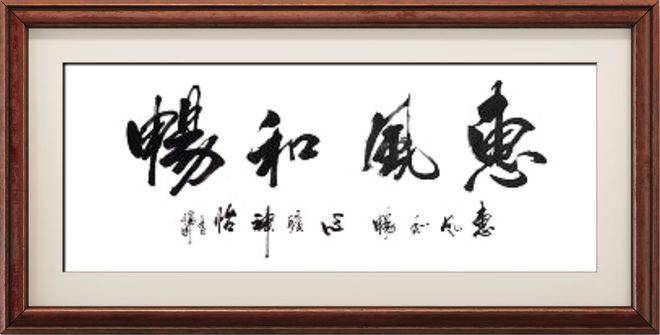 惠風和暢
惠風和暢 心曠神怡